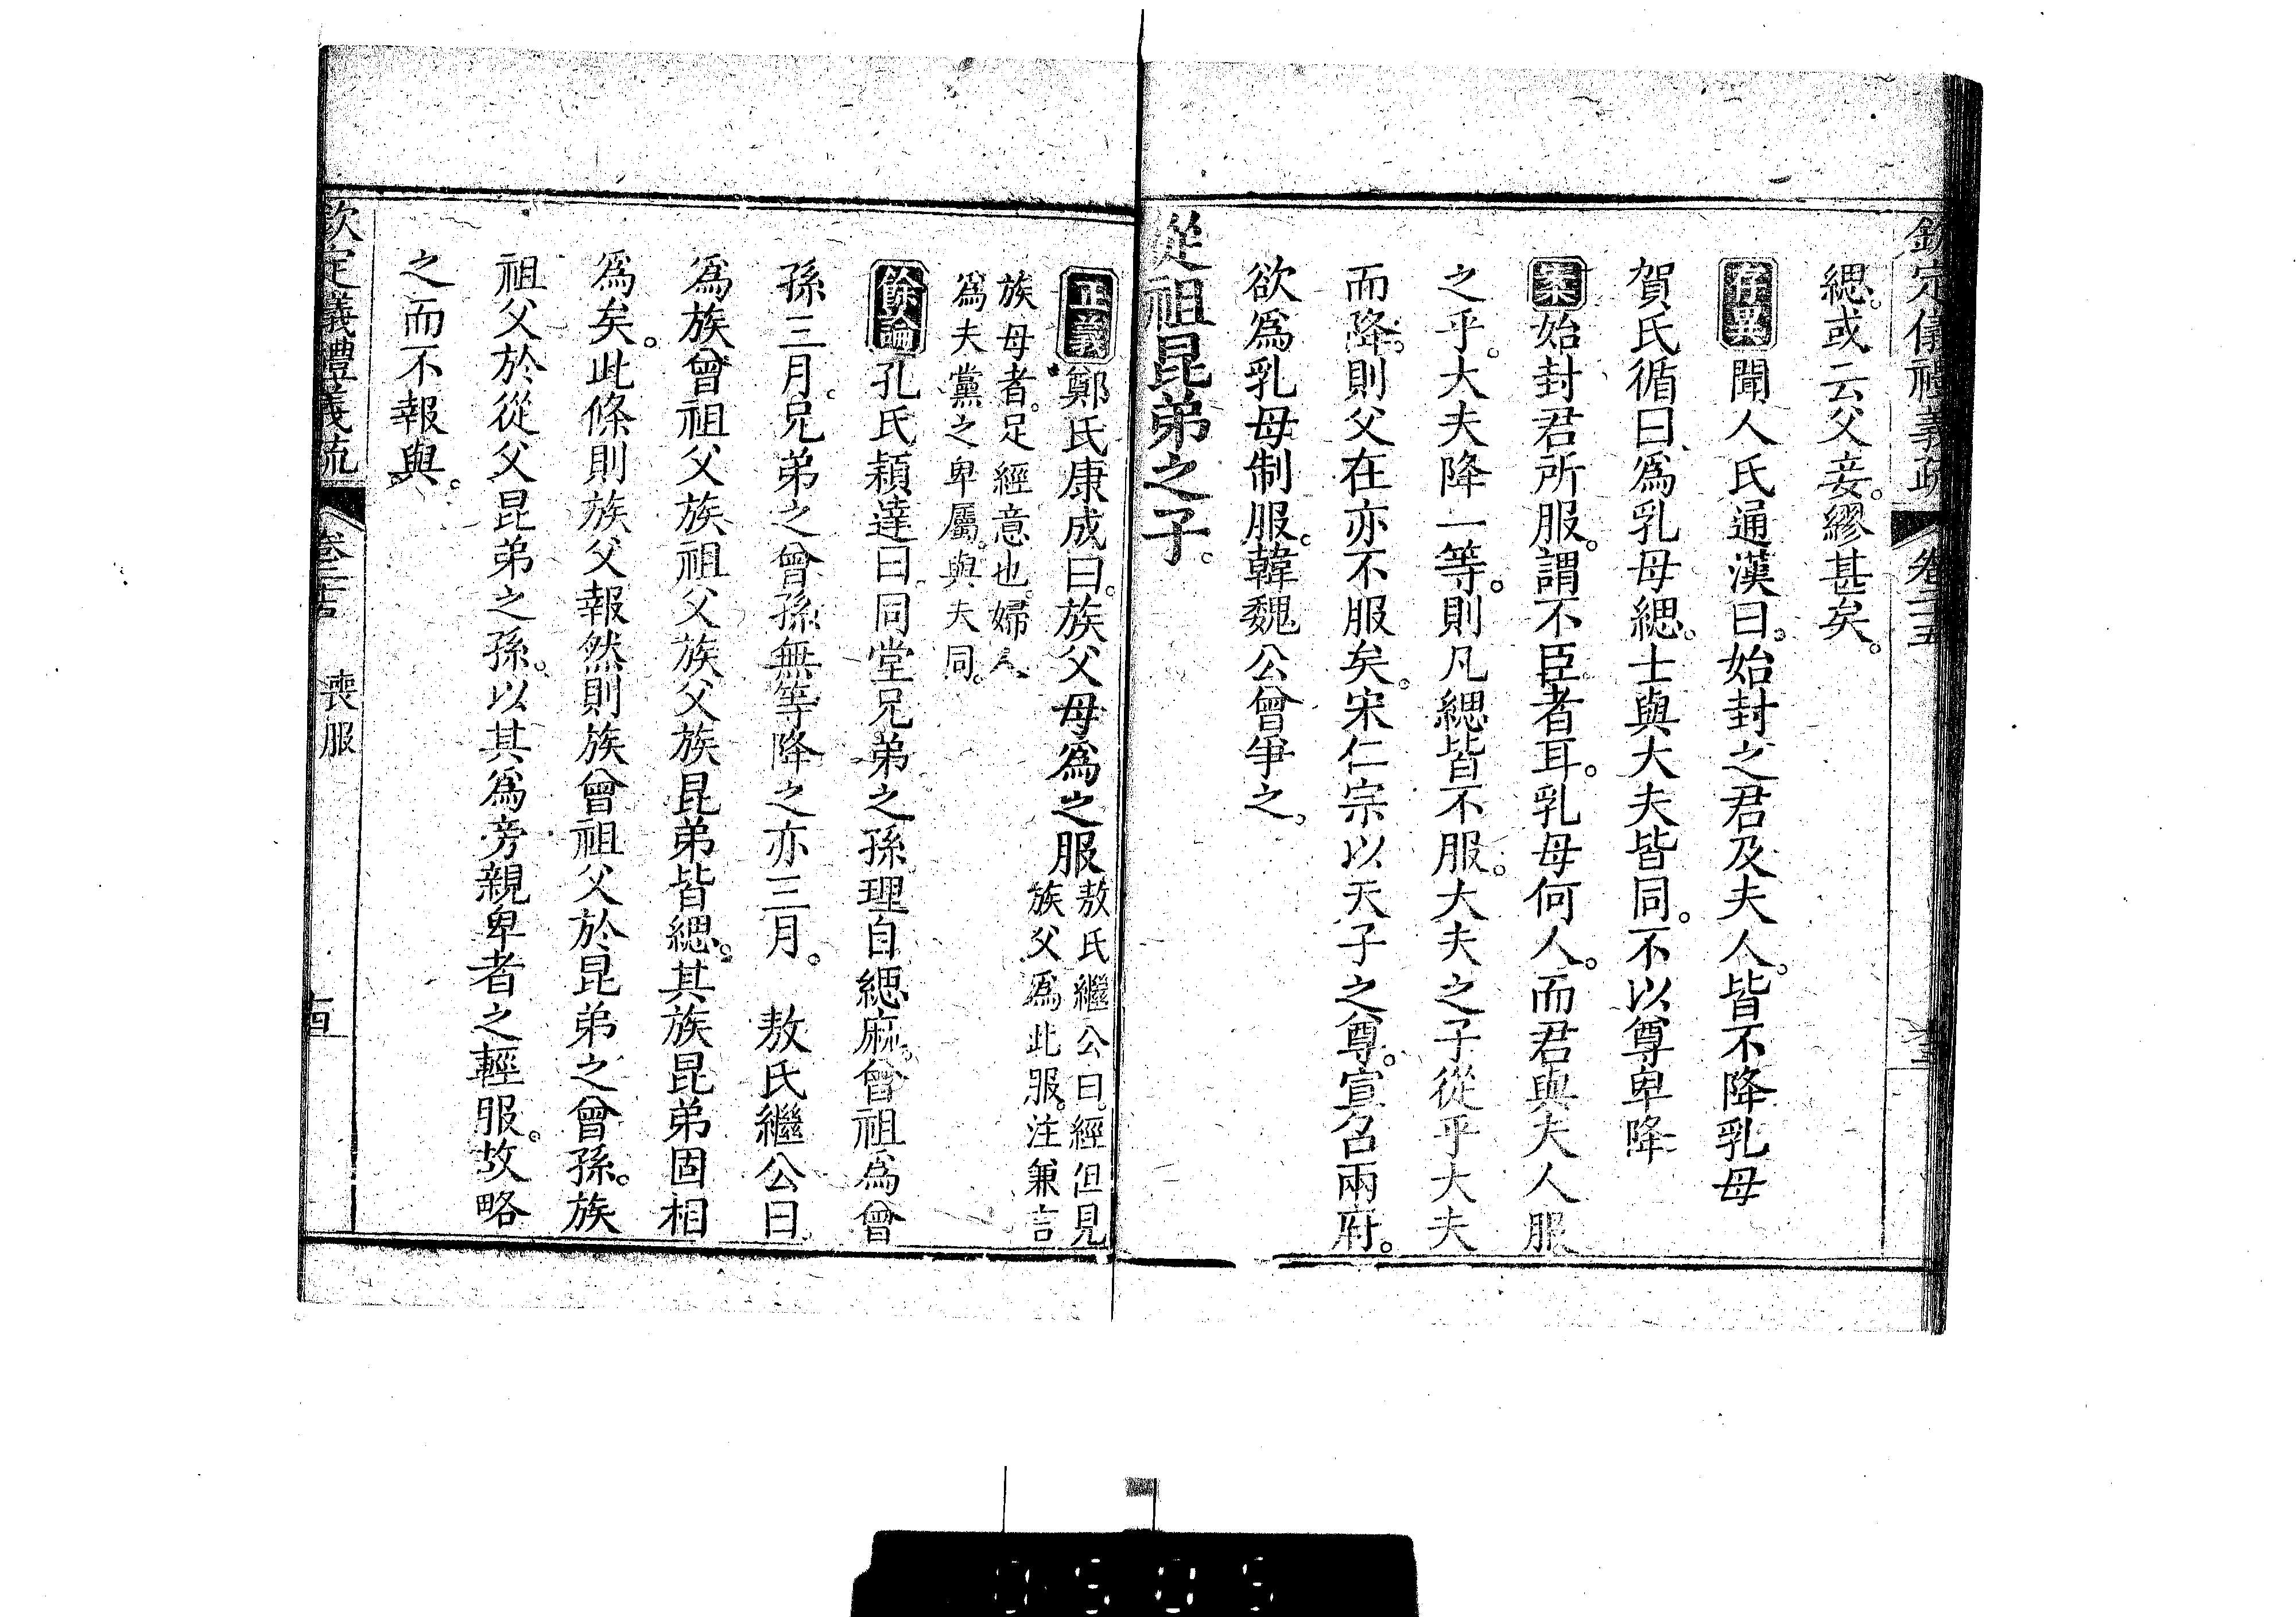 欽定儀禮義疏 卷二十五
緦。或云父妾。繆甚矣。
存異 聞人氏通漢曰。始封之君及夫人。皆不降乳母
賀氏循曰。爲乳母緦。士與大夫皆同。不以尊卑降
案 始封君所服。謂不臣者耳。乳母何人。而君與夫人服
之乎。大夫降一等。則凡緦皆不服。大夫之子從乎大夫
而降。則父在亦不服矣。宋仁宗以天子之尊。宣召兩府。
欲爲乳母制服。韓魏公曾爭之。
從祖昆弟之子。
正義 鄭氏康成曰。族父母爲之服
敖氏繼公曰。經但見
族父爲此服。注兼言
族母者。足經意也。婦人
爲夫黨之卑屬。與夫同。
餘論 孔氏穎達曰。同堂兄弟之孫。理自緦麻。曾祖爲曾
孫三月。兄弟之曾孫。無等降之。亦三月。 敖氏繼公曰。
爲族曾祖父族祖父族父族昆弟皆緦。其族昆弟固相
爲矣。此條則族父報。然則族曾祖父於昆弟之曾孫。族
祖父於從父昆弟之孫。以其爲旁親卑者之輕服。故略
之而不報與。
欽定儀禮義疏 喪服 十四